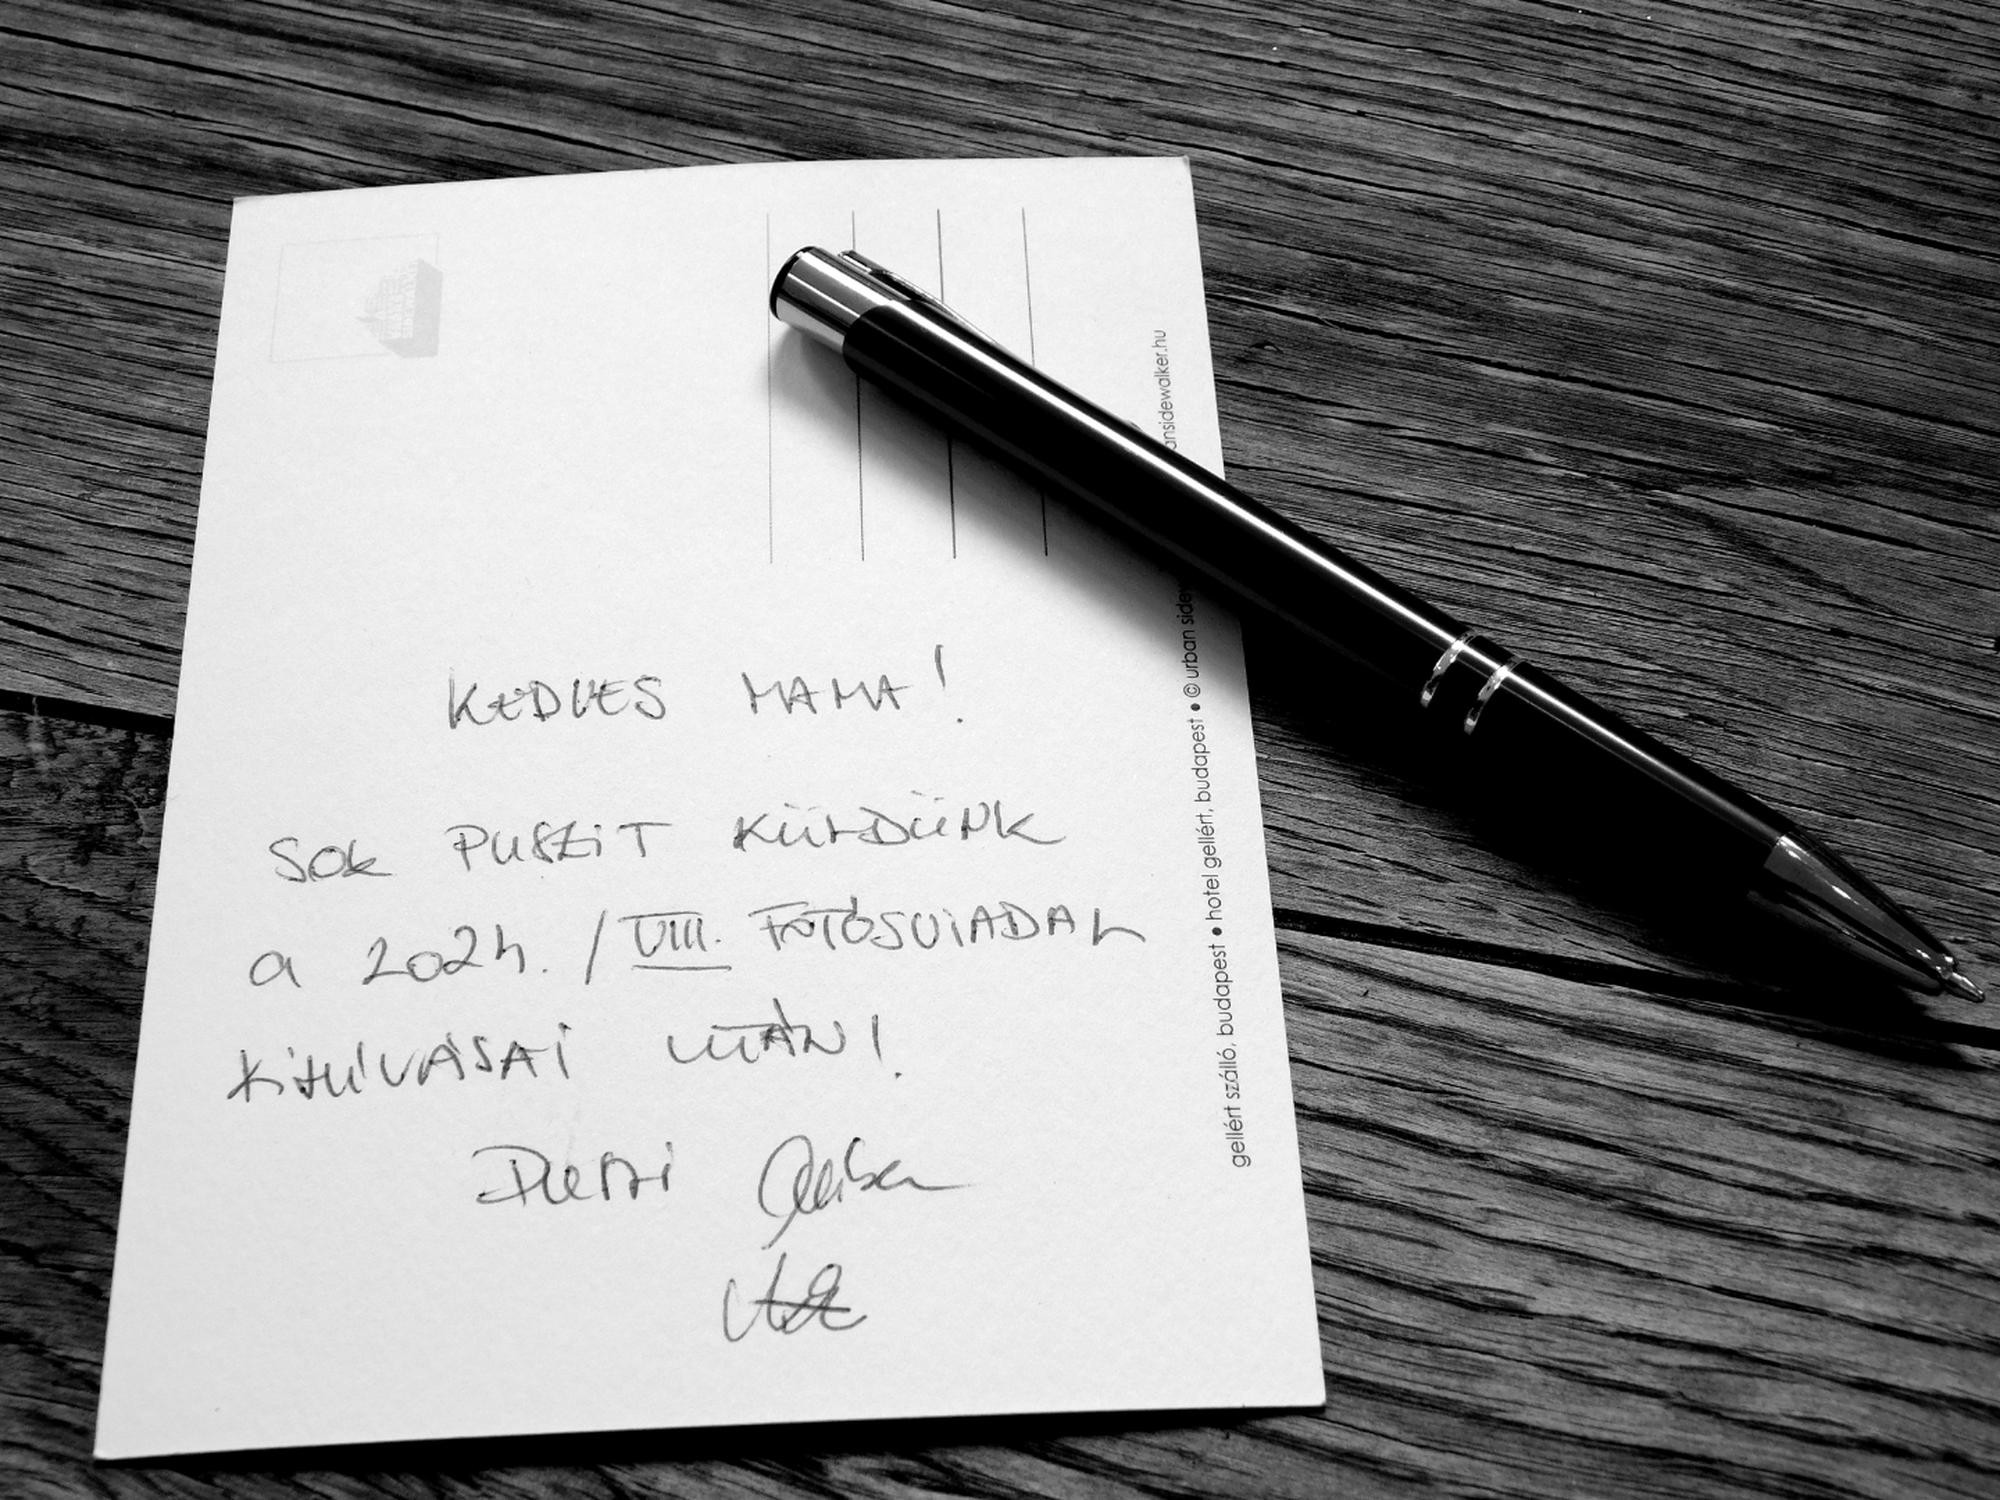 KEDVES MAMA!
SOK PUSZIT KÜLDÜNK
a 2024. / VIII. FOTÓSVIADAL
KIHÍVÁSAI UTÁN!
Puszi
gellért szálló, budapest • hotel gellért, budapest • © urban side
ansidewalker.hu